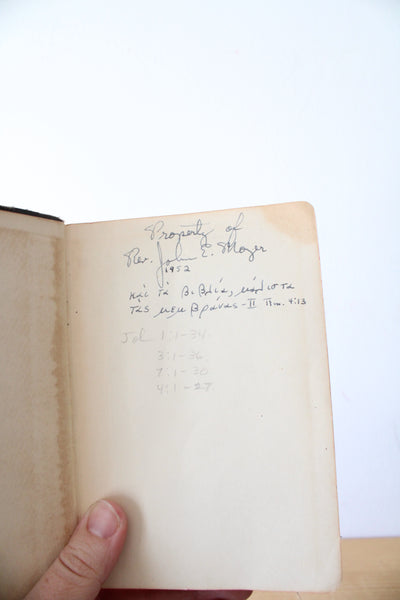 Property of
Rev. John E. Moyer
1952
καί τα βιβλία, μάλιστα
τας μεμβράνας - II Tim. 4:13
John 1:1-34
3:1-36
7:1-30
4:1-27